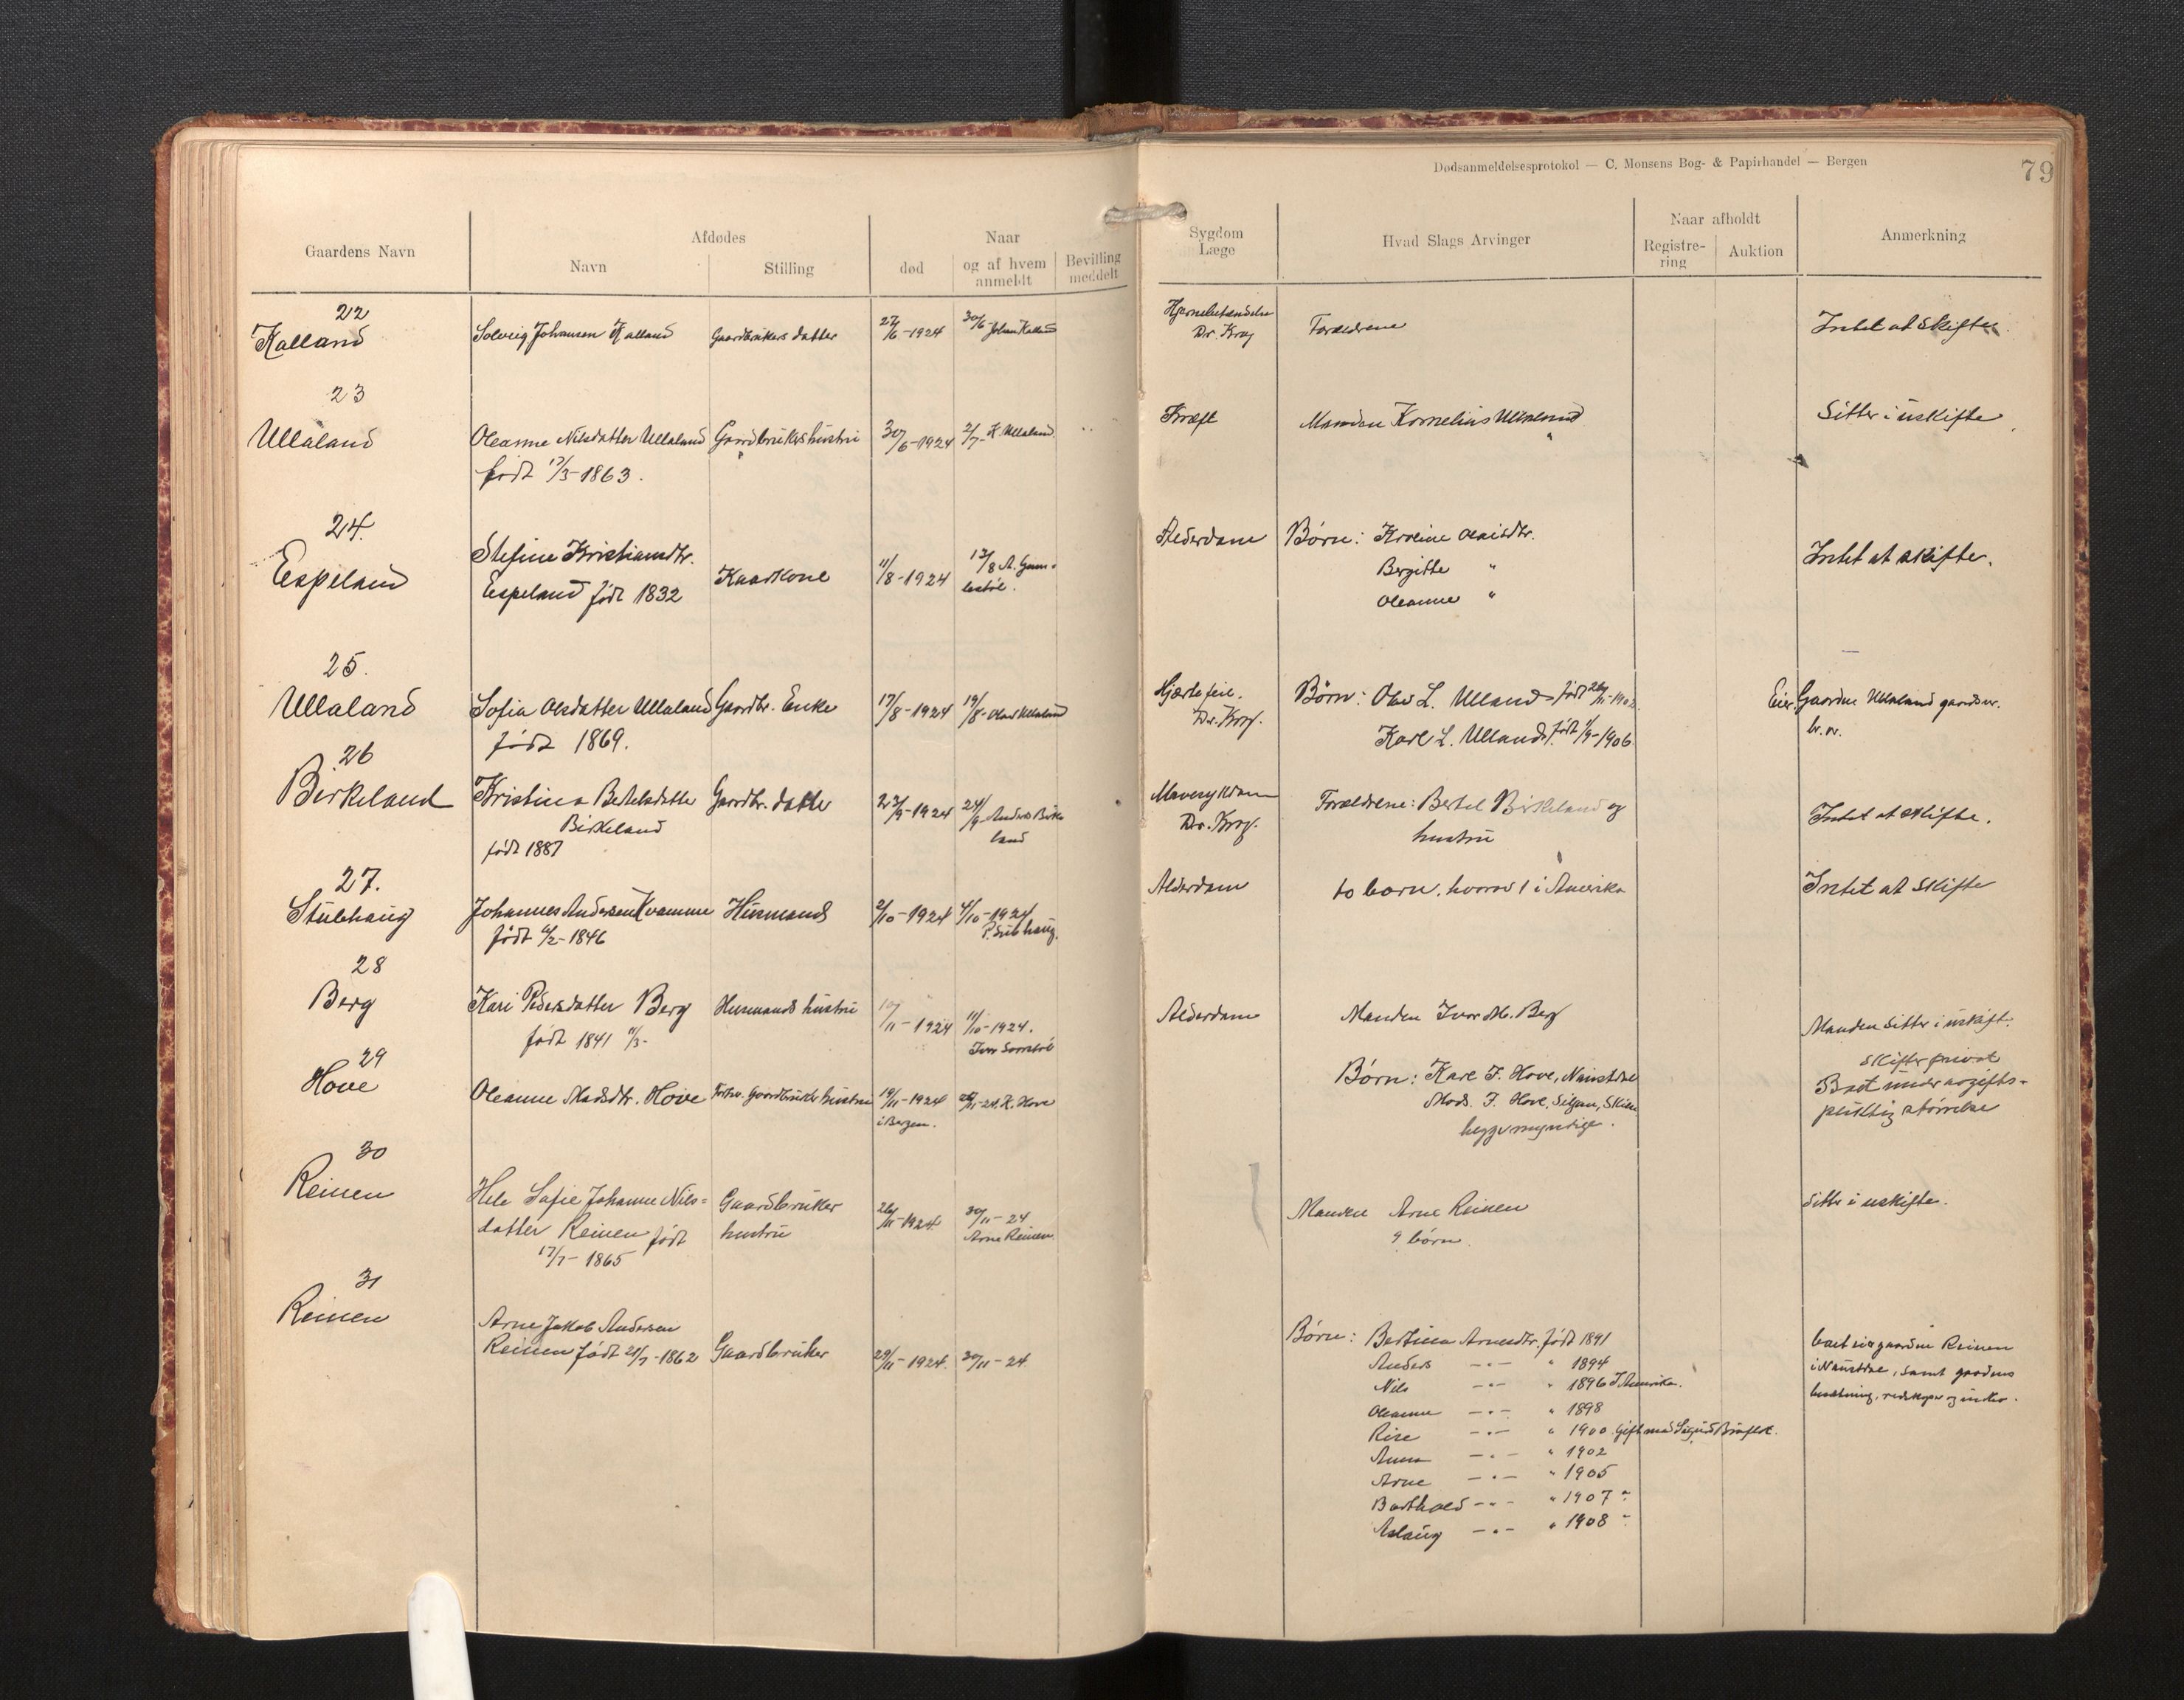 Dødsanmeldelsesprotokol — C. Monsens Bog- & Papirhandel — Bergen
79
Gaardens Navn
Afdødes
Navn
Stilling
Naar
død
og af hvem anmeldt
Bevilling meddelt
Sygdom
Læge
Hvad Slags Arvinger
Naar afholdt
Registre-
ring
Auktion
Anmerkning
22
Kalland
Solveig Johansen Kalland
Gaardbrukers datter
27/6-1924
30/6- Johan Kalland
Hjernebetændelse
Dr. Krog
Forældrene
Intet at skifte.
23
Ullaland
Oleanne Nilsdatter Ullaland
født 17/3-1863.
Gaardbrukers hustru
30/6-1924
2/7- K. Ullaland
Kræft
Manden Kornelius Ullaland
Sitter i uskifte
24.
Espeland
Stefine Kristiansdtr.
Espeland født 1832
Kaarkone
11/8-1924
13/8 A.
Alderdom
Børn:
Bergitte "
Oleanne "
Intet at skifte.
25.
Ullaland
Sofia Olsdatter Ullaland
født 1869.
Gaardbr. Enke
17/8-1924
19/8- Olav Ullaland
Hjærtefeil.
Dr. Krog.
Børn: Olav L. Ulland født
Karl L. Ulland født 1/9-1906
Eier Gaarden Ullaland gaardsnr.
br. nr.
26
Birkeland
Kristina Bertelsdatter
Birkeland
født 1887
Gaardbr. datter
23/9-1924
24/9- Anders Birke
land
Mavesykdom
Dr. Krog.
Forældrene: Bertel Birkeland og
hustru
Intet at skifte.
27.
Stubhaug
Johannes Andersen Kvamme
født 6/2-1846
Husmand
2/10-1924
4/10-1924
P. Stubhaug.
Alderdom
to barn, hvorav 1 i Amerika
Intet at skifte
28
Berg
Kari Pedersdatter Berg
født 1841 11/3-
Husmands hustru
10/11-1924
11/10-1924.
Alderdom
Manden Ivar M. Berg
Manden sitter i uskift.
29
Hove
Oleanne Madsdtr. Hove
Forhv. Gaardbruker hustru
19/11-1924
i Bergen.
K. Hove
Børn: Karl F. Hove, Naustdal
Mads F. Hove, Siljan, Skien
begge myndige.
Skifter privat
Boet under avgifts-
pliktig størrelse
30
Reinen
Sofie Johanne Nils=
datter Reinen født
17/7-1865
Gaardbruker
hustru
26/11-1924.
30/11-24
Arne Reinen.
Manden Arne Reinen
9 børn.
Sitter i uskifte.
31
Reinen
Arne Jakob Andersen
Reinen født 21/7-1862
Gaardbruker
29/11-1924.
30/11-24.
Børn: Bertina Arnesdtr. født 1891
Anders —"— " 1894
Nils —"— " 1896 I Amerika.
Oleanne —"— " 1898
—"— " 1900 Gift med
Anna —"— " 1902
Arne —"— " 1905
Barthold —"— " 1907
Aslaug —"— " 1908
boet eier gaarden Reinen
i Naustdal, samt gaardens
besætning, redskaper og indbo.